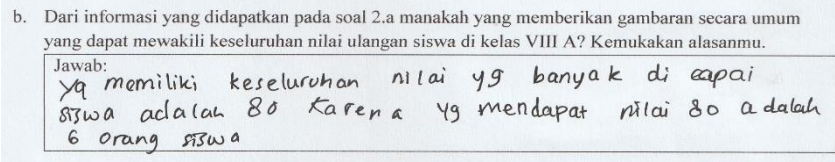 b. Dari informasi yang didapatkan pada soal 2.a manakah yang memberikan gambaran secara umum
yang dapat mewakili keseluruhan nilai ulangan siswa di kelas VIII A? Kemukakan alasanmu.
Jawab:
yg memiliki keseluruhan nilai yg banyak di capai
siswa adalah 80 karena yg mendapat nilai 80 adalah
6 orang siswa